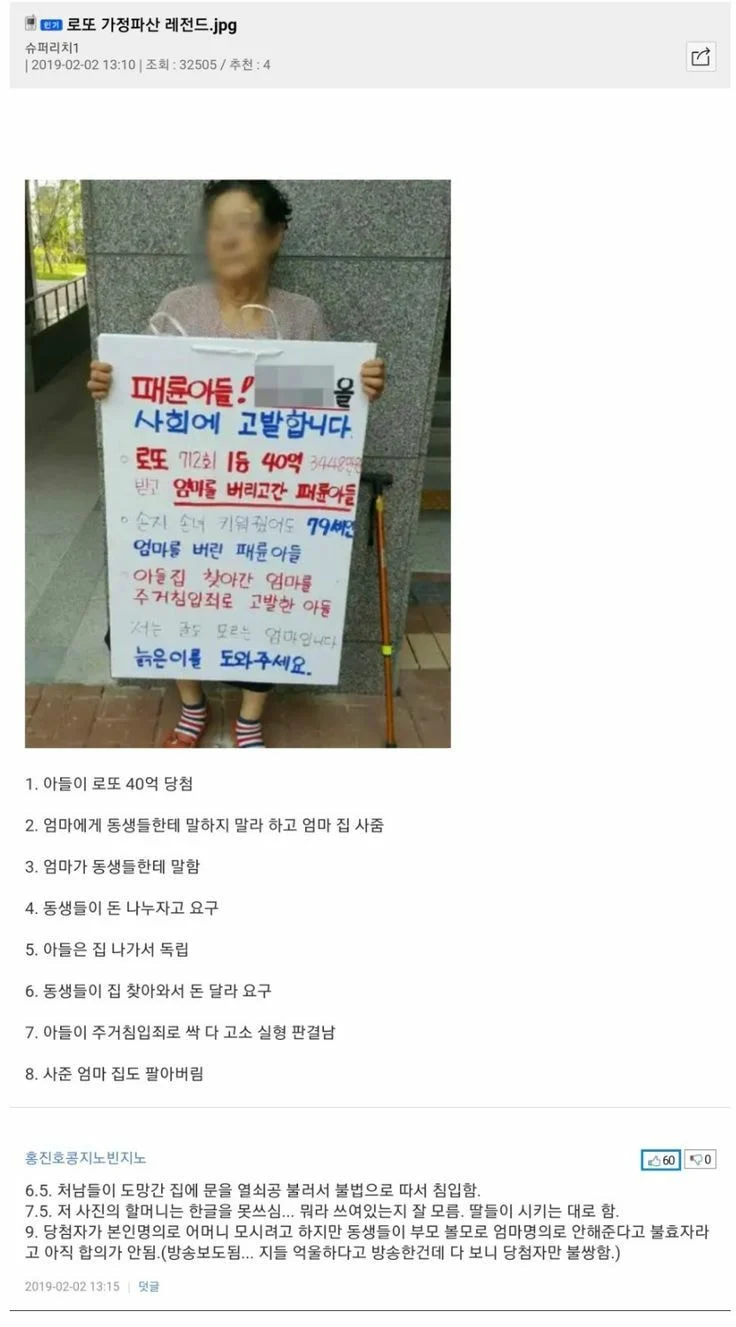 인기 로또 가정파산 레전드.jpg
슈퍼리치1
| 2019-02-02 13:10 | 조회 : 32505 / 추천 : 4
패륜아들! 을
사회에 고발합니다.
로또 712회 1등 40억 3448만원
받고 엄마를 버리고간 패륜아들
손지 손녀 키워줬어도 79세인
엄마를 버린 패륜아들
아들집 찾아간 엄마를
주거침입죄로 고발한 아들
저는 글도 모르는 엄마입니다
늙은이를 도와주세요.
1. 아들이 로또 40억 당첨
2. 엄마에게 동생들한테 말하지 말라 하고 엄마 집 사줌
3. 엄마가 동생들한테 말함
4. 동생들이 돈 나누자고 요구
5. 아들은 집 나가서 독립
6. 동생들이 집 찾아와서 돈 달라 요구
7. 아들이 주거침입죄로 싹 다 고소 실형 판결남
8. 사준 엄마 집도 팔아버림
홍진호콩지노빈지노
60 0
6.5. 처남들이 도망간 집에 문을 열쇠공 불러서 불법으로 따서 침입함.
7.5. 저 사진의 할머니는 한글을 못쓰심... 뭐라 쓰여있는지 잘 모름. 딸들이 시키는 대로 함.
9. 당첨자가 본인명의로 어머니 모시려고 하지만 동생들이 부모 볼모로 엄마명의로 안해준다고 불효자라
고 아직 합의가 안됨.(방송보도됨... 지들 억울하다고 방송한건데 다 보니 당첨자만 불쌍함.)
2019-02-02 13:15 | 덧글